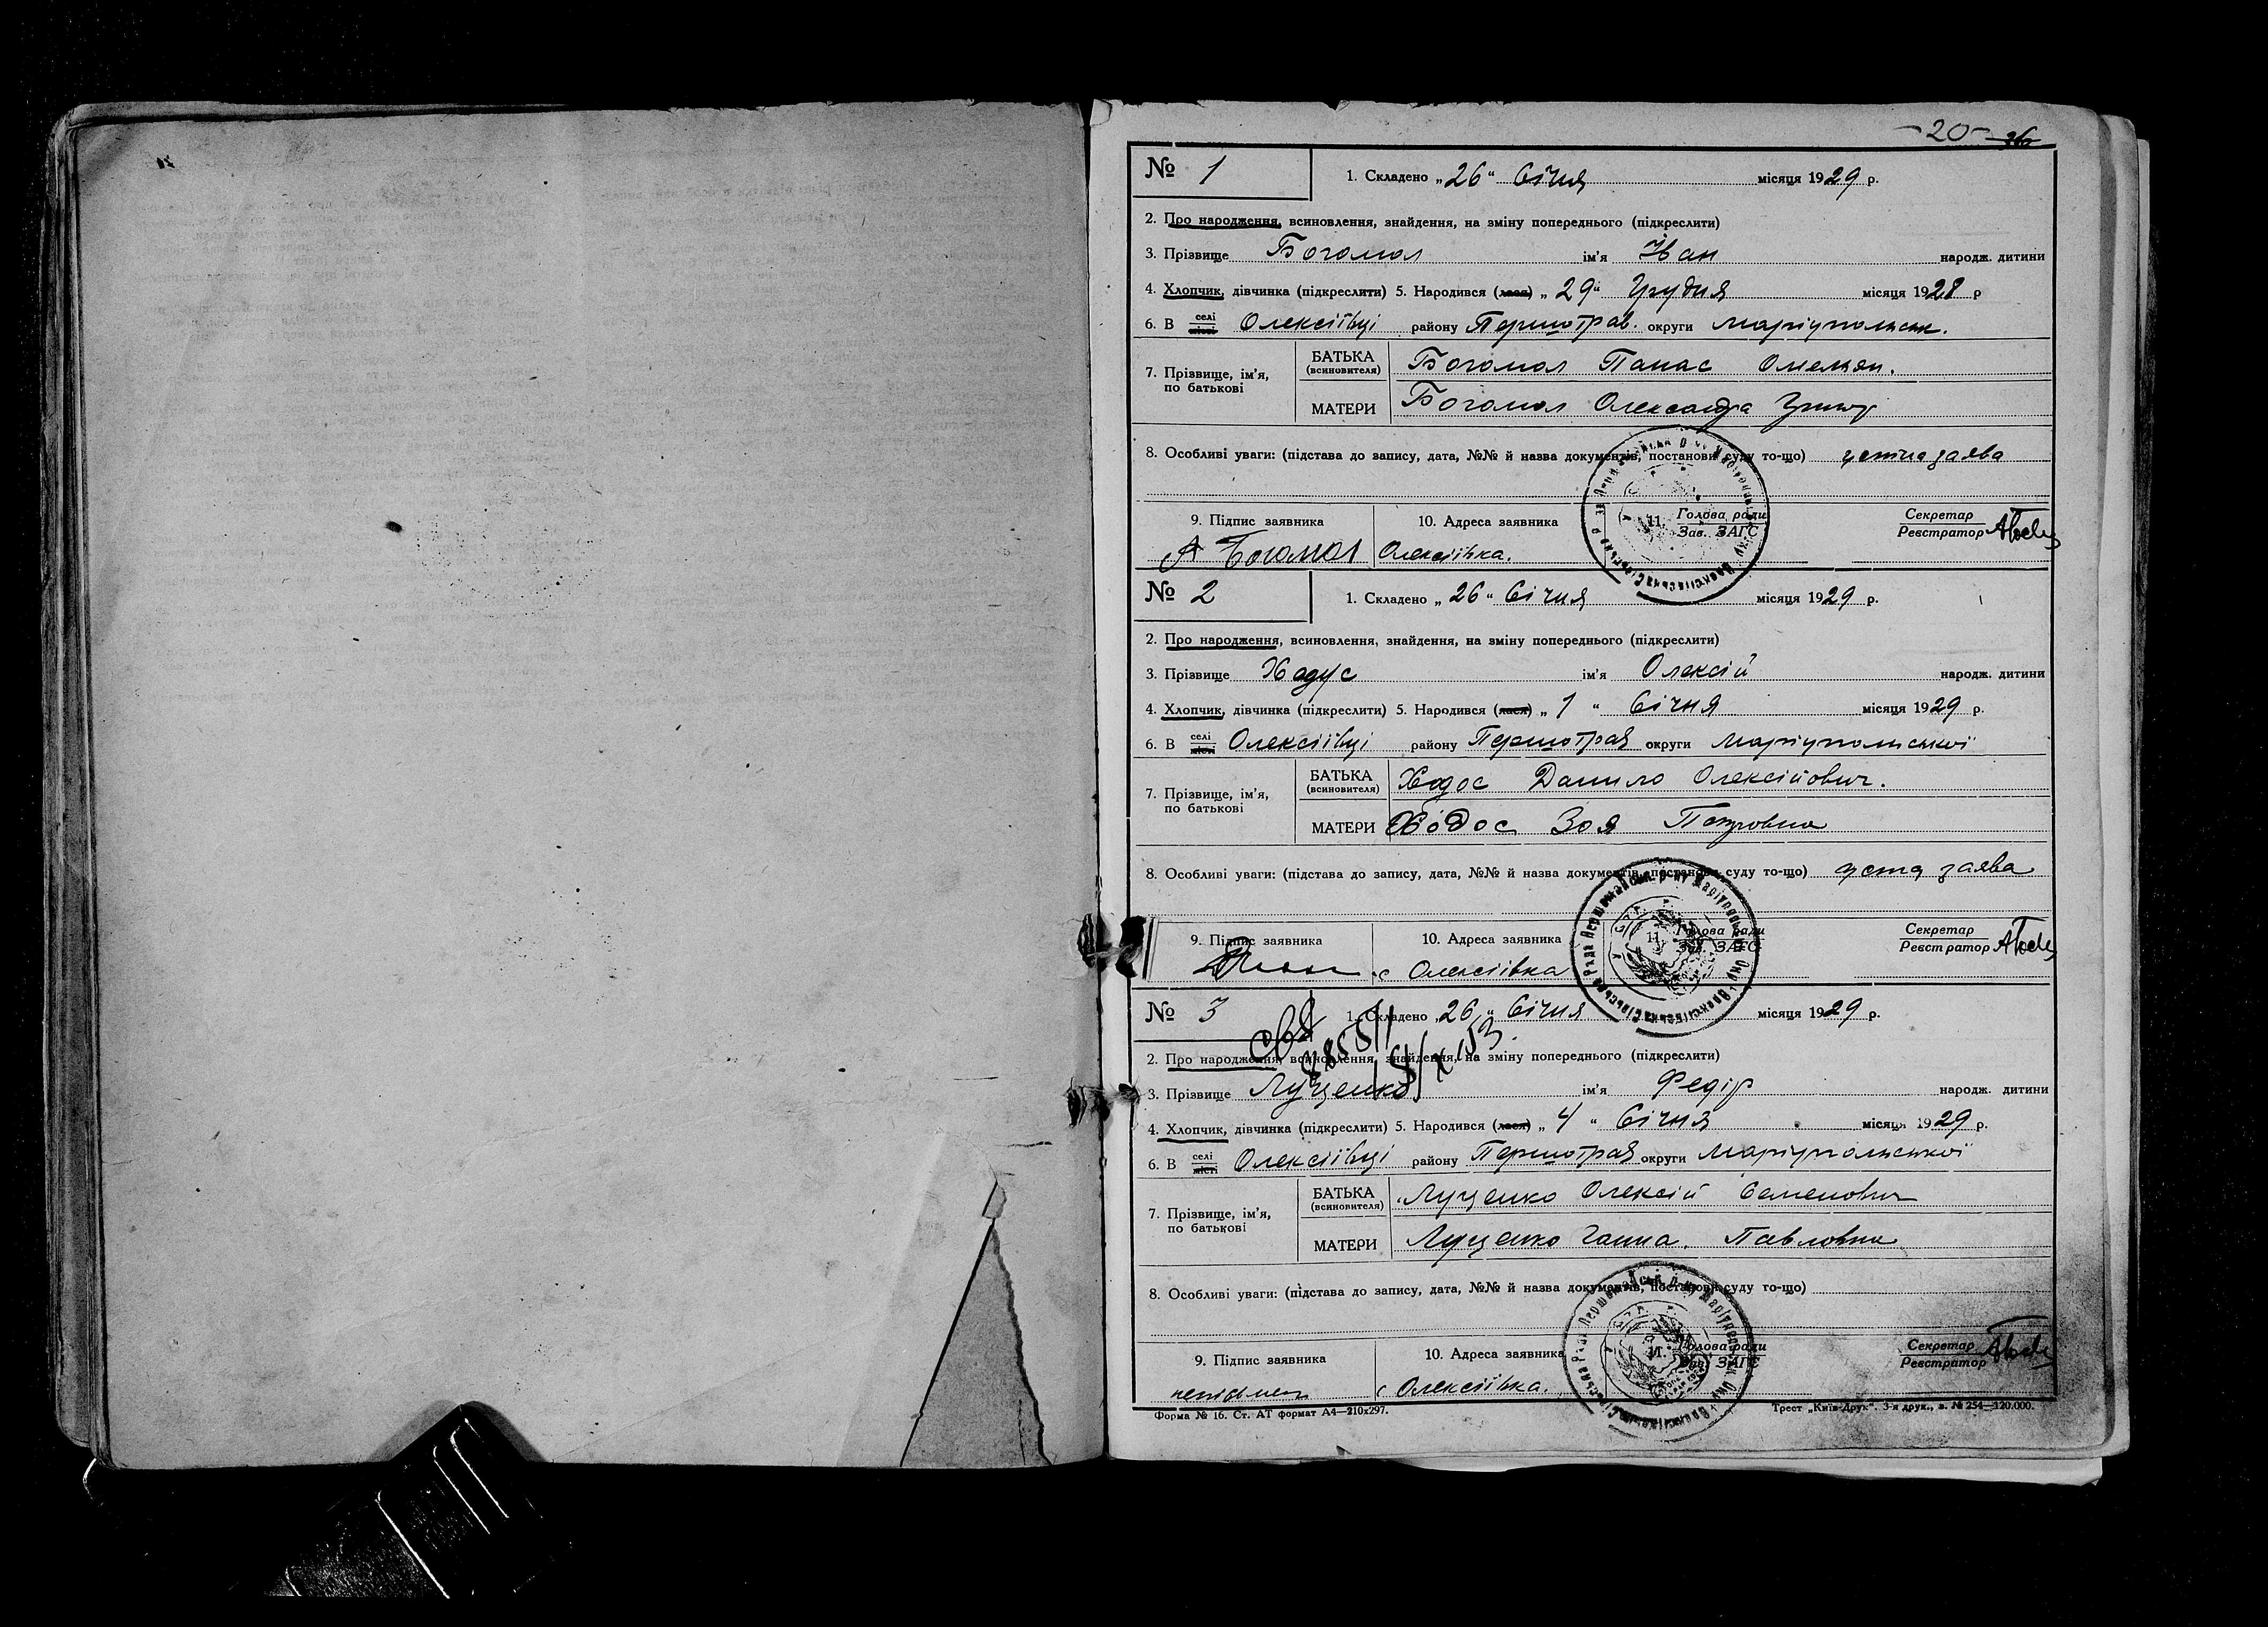 -20-
№ 1
1. Складено „26“ Січня місяця 1929 р.
2. Про народження, всиновлення, знайдення, на зміну попереднього (підкреслити)
3. Прізвище Богомол ім'я Іван народж. дитини
4. Хлопчик, дівчинка (підкреслити) 5. Народився (лася) „29“ Грудня місяця 1928 р
6. В селі місті Олексіївці району Першотрав. округи Маріупольськ.
7. Прізвище, ім'я, по батькові
БАТЬКА (всиновителя) Богомол Панас Омелян.
МАТЕРИ Богомол Олександра Григор
8. Особливі уваги: (підстава до запису, дата, №№ й назва документів, постанови суду то-що) устна заява
9. Підпис заявника 10. Адреса заявника 11. Голова ради Зав. ЗАГС Секретар Реєстратор
А Богомол Олексіївка.
№ 2
1. Складено „26“ Січня місяця 1929 р.
2. Про народження, всиновлення, знайдення, на зміну попереднього (підкреслити)
3. Прізвище Ходус ім'я Олексій народж. дитини
4. Хлопчик, дівчинка (підкреслити) 5. Народився (лася) „1“ Січня місяця 1929 р.
6. В селі місті Олексіївці району Першотрав округи Маріупольської
7. Прізвище, ім'я, по батькові
БАТЬКА (всиновителя) Ходос Данило Олексійович.
МАТЕРИ Ходос Зоя Петровна
8. Особливі уваги: (підстава до запису, дата, №№ й назва документів, постанови суду то-що) устна заява
9. Підпис заявника 10. Адреса заявника 11. Голова ради Зав. ЗАГС Секретар Реєстратор
с Олексіївка
№ 3
1. Складено „26“ Січня місяця 1929 р.
2. Про народження, всиновлення, знайдення, на зміну попереднього (підкреслити)
3. Прізвище Луценко ім'я Федір народж. дитини
4. Хлопчик, дівчинка (підкреслити) 5. Народився (лася) „4“ Січня місяця 1929 р.
6. В селі місті Олексіївці району Першотрав округи Маріупольської
7. Прізвище, ім'я, по батькові
БАТЬКА (всиновителя) Луценко Олексій Семенович
МАТЕРИ Луценко Ганна. Павловна
8. Особливі уваги: (підстава до запису, дата, №№ й назва документів, постанови суду то-що)
9. Підпис заявника 10. Адреса заявника 11. Голова ради Зав. ЗАГС Секретар Реєстратор
с Олексіївка.
Форма № 16. Ст. АТ формат А4—210х297. Трест „Київ-Друк“. 3-я друк., з. № 254—120.000.